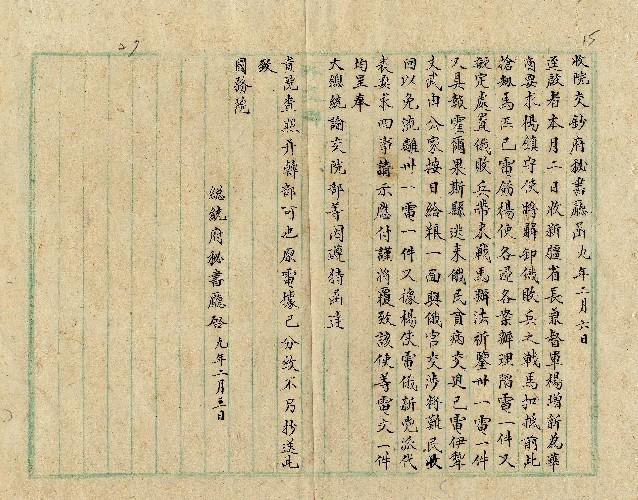 15
收院交鈔府秘書廳函 九年二月六日
逕啟者本月二日收新疆省長兼督軍楊增新為華
商要求楊鎮守使將聯卸俄敗兵之戰馬扣抵前此
搶刼馬匹已電飭楊使各歸各案辦理陷電一件又
擬定處置俄敗兵帶來戰馬辦法祈鑒卅一電一件
又具報霍爾果斯縣逃來俄民貧病交迫已電伊犂
文武由公家按日給糧一面與俄官交涉將難民收
回以免流離卅一電一件又據楊使電俄新党派代
表要求四事請示應付謹將覆致該使等電文一件
均呈奉
大總統諭交院部等因遵特函達
貴院查照并轉部可也原電據已分致不另抄送此
致
國務院
總統府秘書廳啓 九年二月 日